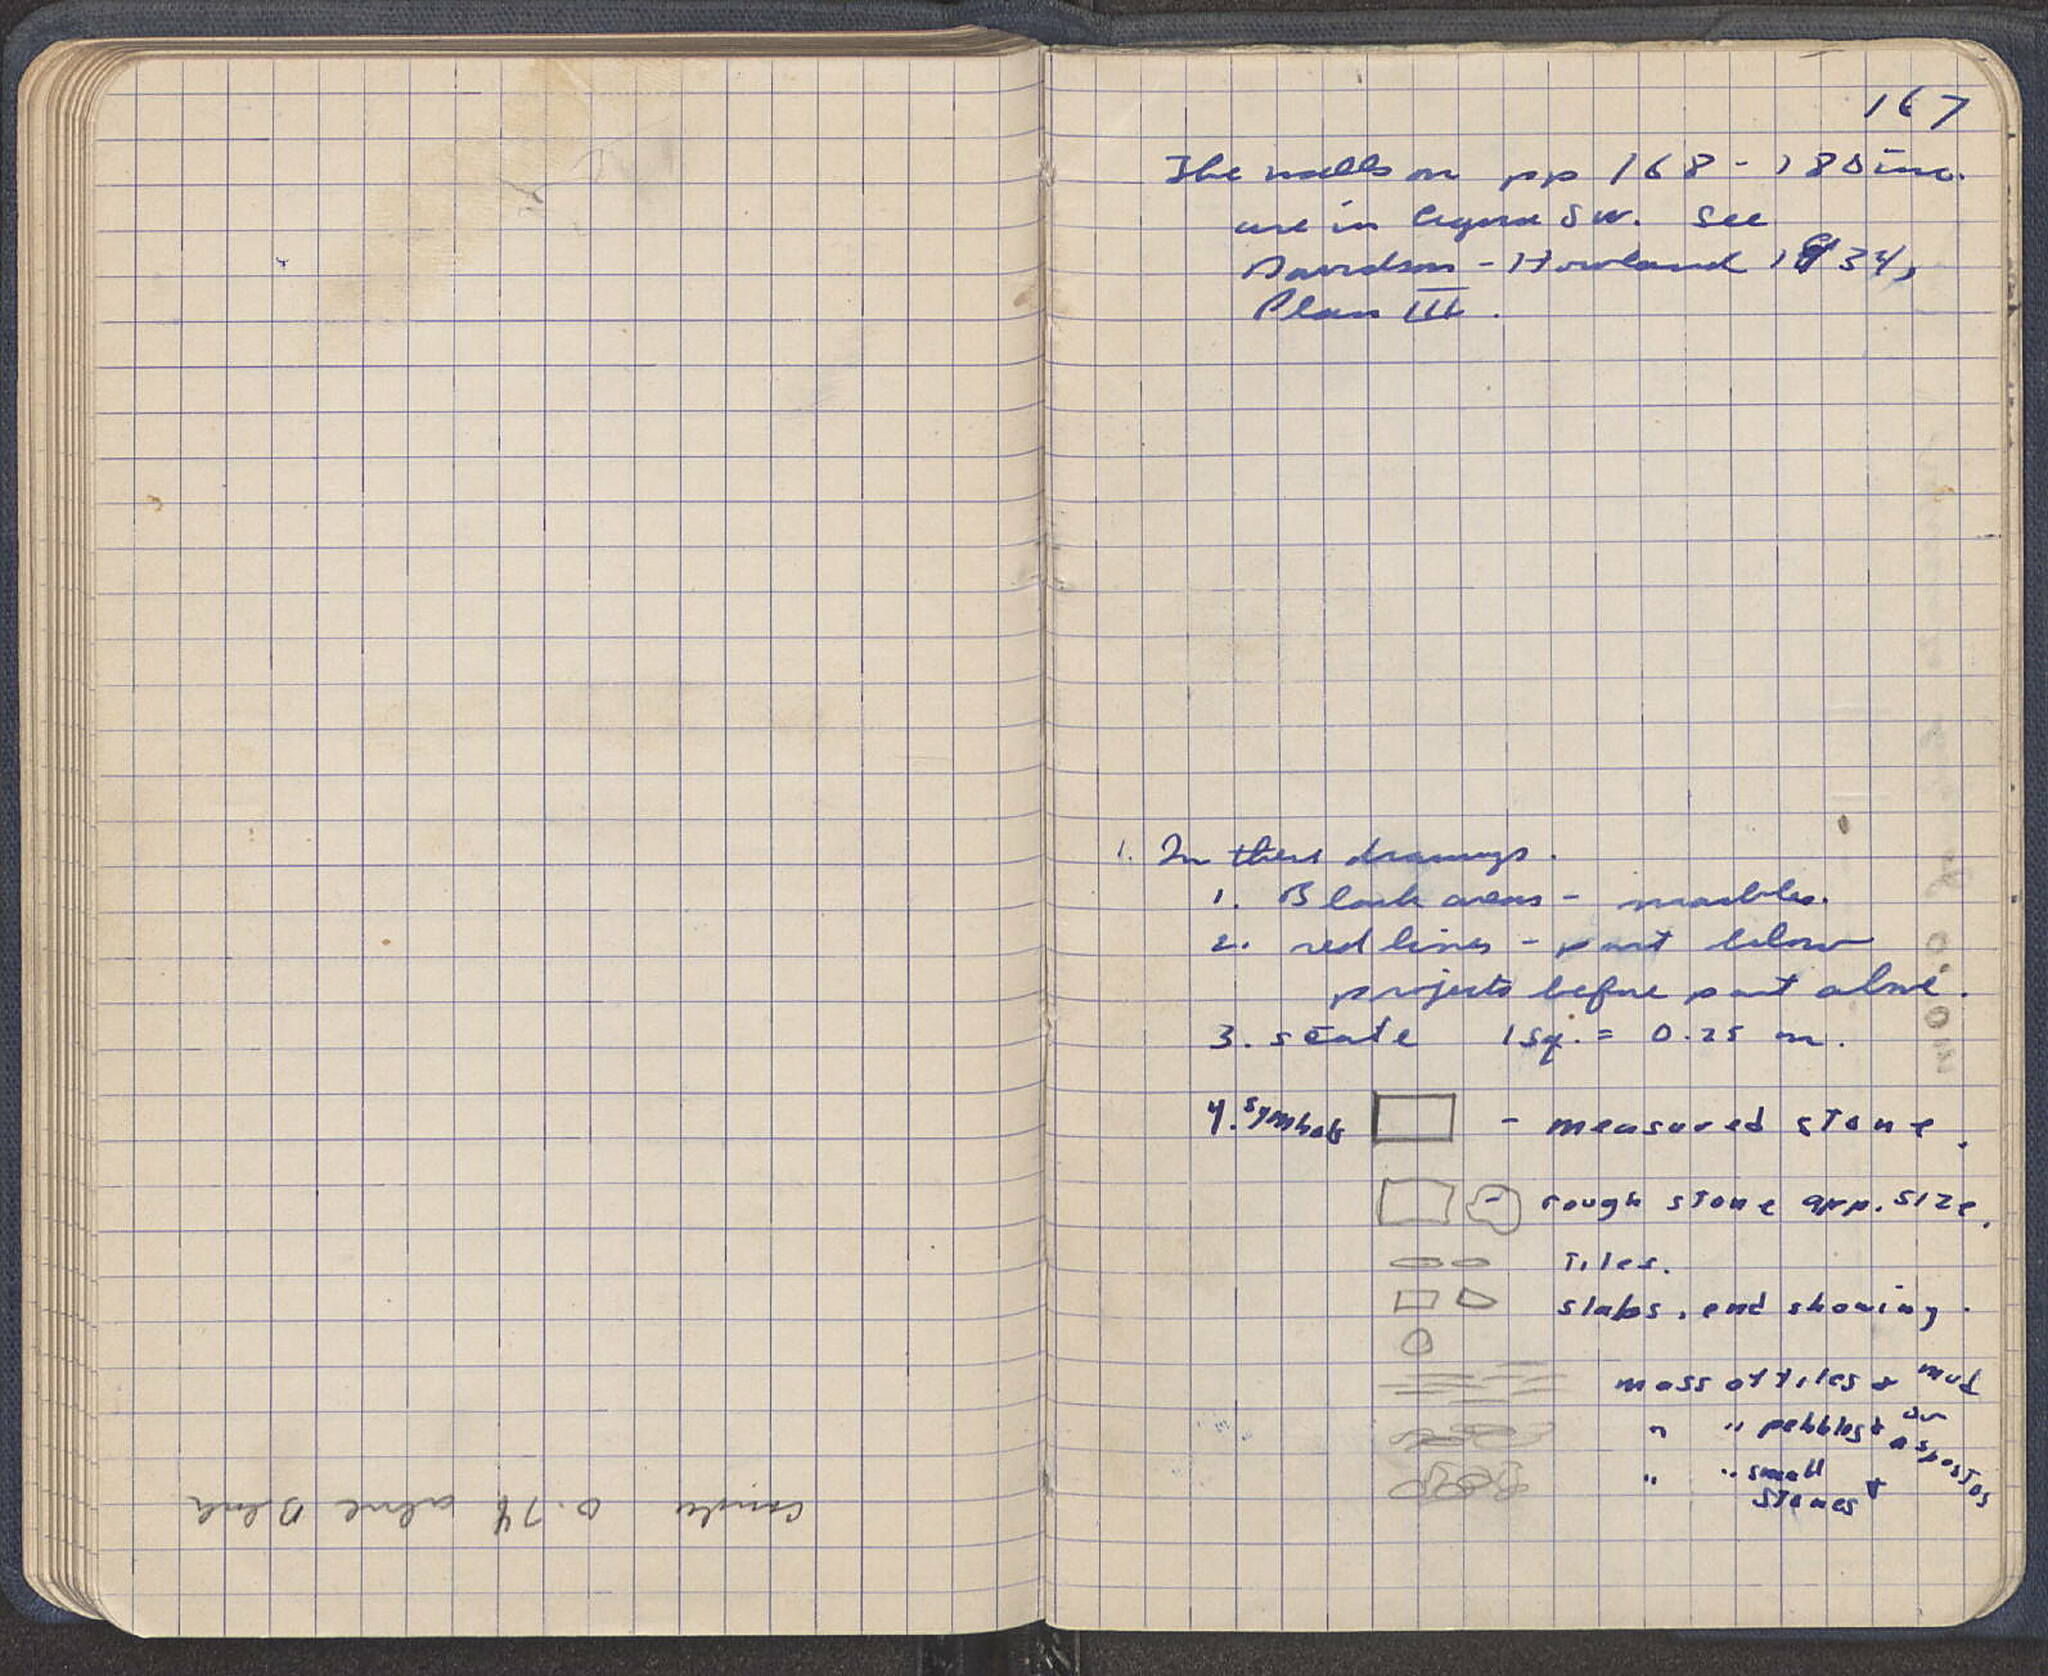 167
The walls on pp 168 - 180 inc.
are in Agora SW. See
Davidson - Howland 1934,
Plan III.
1. In these drawings.
1. Black areas - marbles.
2. red lines - part below
projects before part above.
3. scale 1 sq. = 0.25 m.
4. symbols - measured stone.
- rough stone app. size.
Tiles.
slabs, end showing.
mass of tiles & mud
" " pebbles & or
aspostos
" " small
stones &
0.74 above